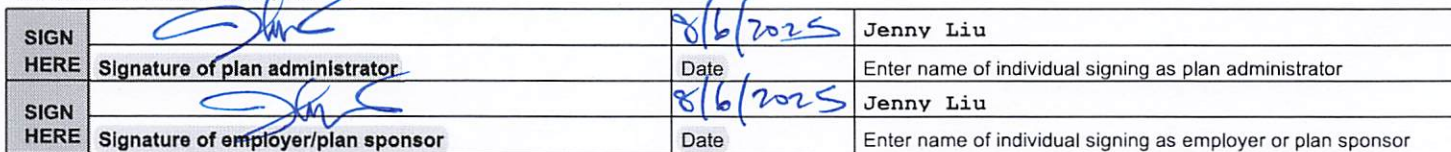 SIGN HERE 8/6/2025 Jenny Liu
Signature of plan administrator Date Enter name of individual signing as plan administrator
SIGN HERE 8/6/2025 Jenny Liu
Signature of employer/plan sponsor Date Enter name of individual signing as employer or plan sponsor